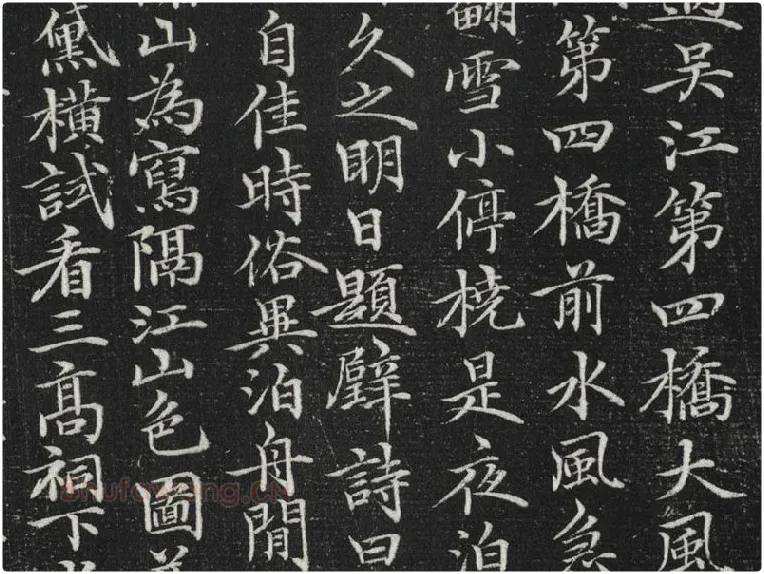 過吳江第四橋大風
第四橋前水風急
翻雪小停橈是夜泊
久之明日題壁詩曰
自佳時俗異泊舟閒
山為寫隔江山色圖
黛橫試看三高祠下
shufawang.CN